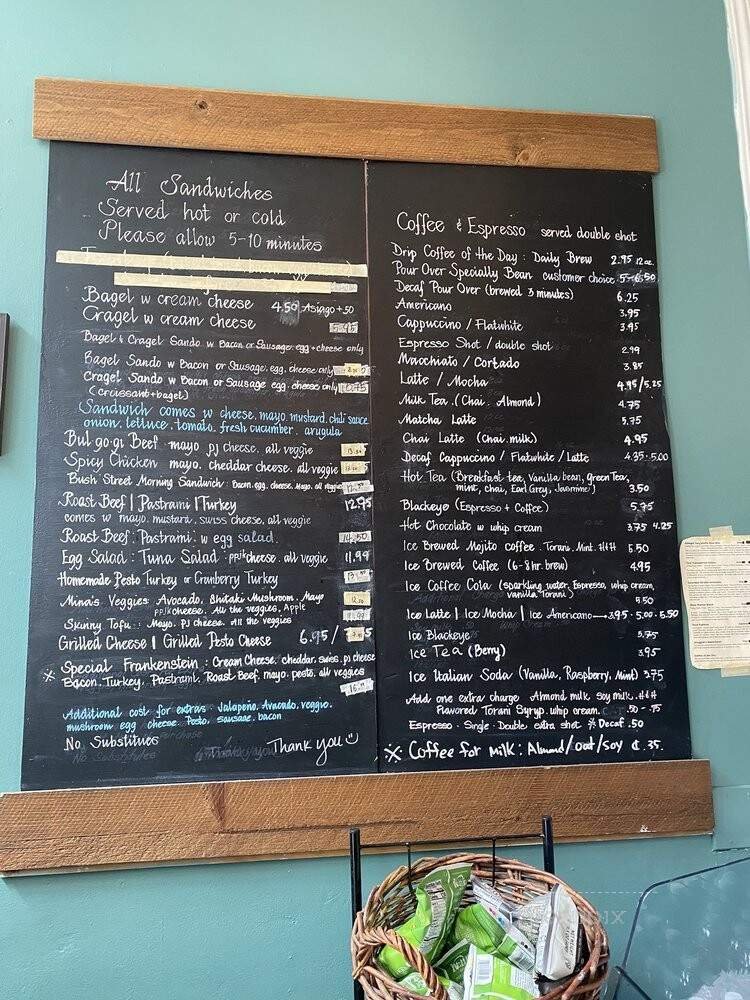 All Sandwiches
Served hot or cold
Please allow 5-10 minutes
Bagel w cream cheese 4.50 Asiago +50
Cragel w cream cheese 5.95
Bagel & Cragel Sando w Bacon or Sausage. egg + cheese only
Bagel Sando w Bacon or Sausage. egg. cheese only
Cragel Sando w Bacon or Sausage egg. cheese only 10.75
(croissant + bagel)
Sandwich comes w cheese. mayo. mustard. chili sauce
onion. lettuce. tomato. fresh cucumber. arugula
Bul go gi Beef mayo pj cheese. all veggie
Spicy Chicken mayo. cheddar cheese. all veggie
Bush Street Morning Sandwich: Bacon. egg. cheese. Mayo. all veggies
Roast Beef | Pastrami | Turkey 12.75
comes w mayo. mustard. swiss cheese, all veggie
Roast Beef. Pastrami. w egg salad. 14.50
Egg Salad: Tuna Salad ppjk cheese. all veggie 11.99
Homemade Pesto Turkey or Cranberry Turkey
Mina's Veggies: Avocado, Shitaki Mushroom. Mayo
ppjk cheese. All the veggies, Apple
Skinny Tofu: Mayo. PJ cheese. All the veggies 11.99
Grilled Cheese | Grilled Pesto Cheese 6.95 /
※ Special Frankenstein: Cream Cheese. cheddar. swiss. pj cheese
Bacon. Turkey. Pastrami. Roast Beef. mayo. pesto. all veggies
Additional cost for extras. Jalapeño. Avacado. veggie.
mushroom egg cheese. Pesto. sausage. bacon
No Substitues
Thank you
Coffee & Espresso served double shot
Drip Coffee of the Day: Daily Brew 2.95 12oz.
Pour Over Specially Bean customer choice 6.50
Decaf Pour Over (brewed 3 minutes) 6.25
Americano 3.95
Cappuccino / Flatwhite 3.95
Espresso Shot / double shot 2.99
Macchiato / Cortado 3.85
Latte / Mocha 4.95/5.25
Milk Tea. (Chai. Almond) 4.75
Matcha Latte 5.75
Chai Latte (Chai. milk) 4.95
Decaf Cappuccino / Flatwhite / Latte 4.35 · 5.00
Hot Tea (Breakfast tea, Vanilla bean, green Tea,
mint, chai, Earl Grey, Jasmine) 3.50
Blackeye (Espresso + Coffee) 5.75
Hot Chocolate w whip cream 3.75 4.25
Ice Brewed Mojito coffee. Torani. Mint. 5.50
Ice Brewed Coffee (6-8 hr. brew) 4.95
Ice Coffee Cola (Sparkling water, Espresso, whip cream,
vanilla Torani) 5.50
Ice Latte | Ice Mocha | Ice Americano → 3.95 · 5.00 · 5.50
Ice Blackeye 5.75
Ice Tea (Berry) 3.95
Ice Italian Soda (Vanilla, Raspberry, Mint) 3.75
Add one extra charge Almond milk. Soy milk.
Flavored Torani Syryp. whip cream. .50 - .75
Espresso. Single. Double extra shot ※ Decaf .50
※ Coffee for milk: Almond/oat/soy ¢.35.